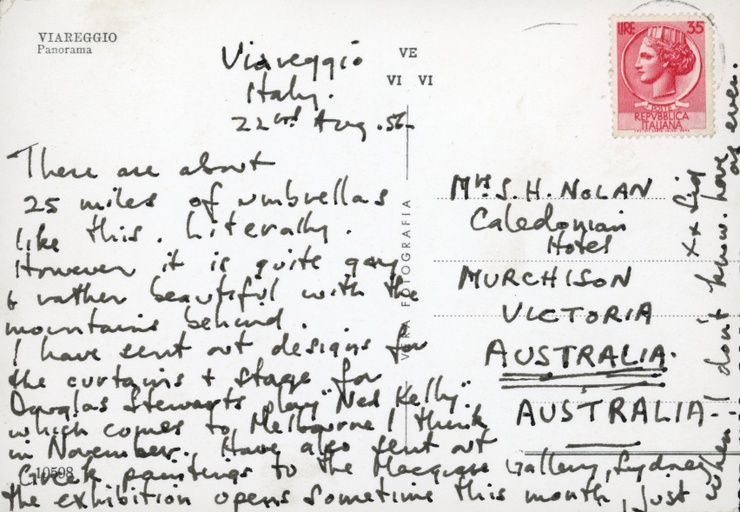 VIAREGGIO
Panorama
VE
VI VI
LIRE 35
POSTE
REPVBBLICA
ITALIANA
Viareggio
Italy.
22nd Aug. 56
There are about
25 miles of umbrellas
like this. Literally.
However it is quite gay
& rather beautiful with the
mountains behind.
I have sent out designs for
the curtains + stage for
Douglas Stewarts play "Ned Kelly".
which comes to Melbourne I think
in November. Have also sent out
Greek paintings to the Macquarie Gallery, Sydney
the exhibition opens sometime this month, just
when I don't know. have
as ever.
xx Sid
10598
VERA FOTOGRAFIA
Mrs S. H. NOLAN
Caledonian
Hotel
MURCHISON
VICTORIA
AUSTRALIA.
AUSTRALIA--